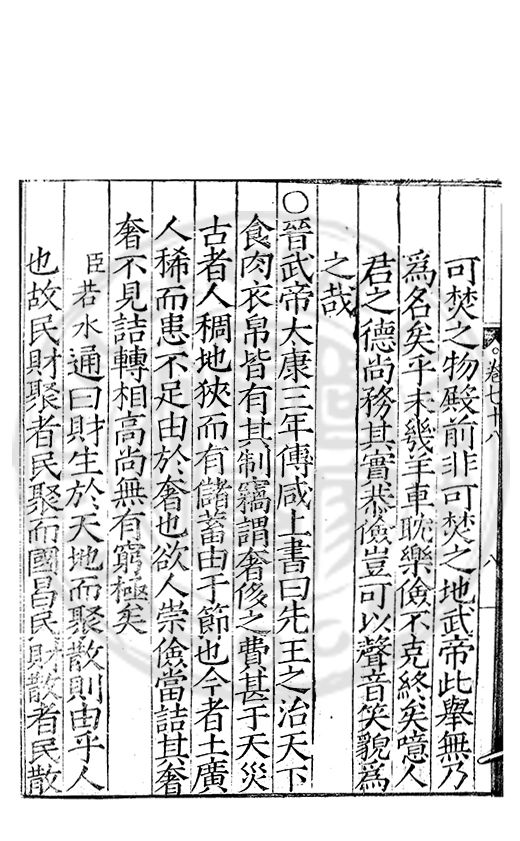 卷七十八
八
可焚之物殿前非可焚之地武帝此舉無乃
爲名矣乎未幾羊車耽樂儉不克終矣噫人
君之德尚務其實恭儉豈可以聲音笑貌爲
之哉
○晉武帝太康三年傅咸上書曰先王之治天下
食肉衣帛皆有其制竊謂奢侈之費甚于天災
古者人稠地狹而有儲蓄由于節也今者土廣
人稀而患不足由於奢也欲人崇儉當詰其奢
奢不見詰轉相高尚無有窮極矣
臣若水通曰財生於天地而聚散則由乎人
也故民財聚者民聚而國昌民財散者民散